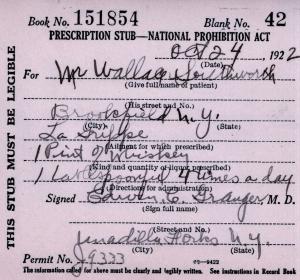 Book No. 151854 Blank No. 42
PRESCRIPTION STUB—NATIONAL PROHIBITION ACT
Oct 24, 1922
(Date)
For Mr Wallace Southworth
(Give full name of patient)
(His street and No.)
Brookfield N.Y.
(City) (State)
La Grippe
(Ailment for which prescribed)
1 Pint of Whiskey
(Kind and quantity of liquor prescribed)
1 tablespoonful 4 times a day
(Directions for administration)
Signed Granger, M. D.
(Sign full name)
(Street and No.)
Unadilla Forks N.Y.
(City) (State)
Permit No. 
The information called for above must be clearly and legibly written. See instructions in Record Book
THIS STUB MUST BE LEGIBLE